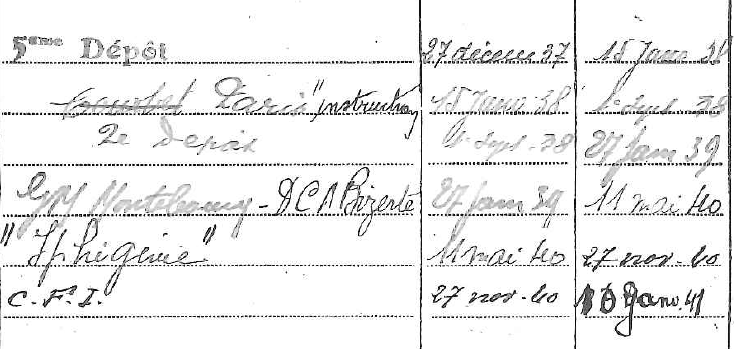 5ème Dépôt 27 décem 37 15 Janv 38
Paris" instruction 15 Janv 38 6 Sept 38
2e Depot 6 Sept - 38 27 Janv 39
GM - DCA Bizerte 27 Janv 39 11 mai 40
"Iphigénie" 11 mai 40 27 nov - 40
C.F.I. 27 nov - 40 Janv. 41